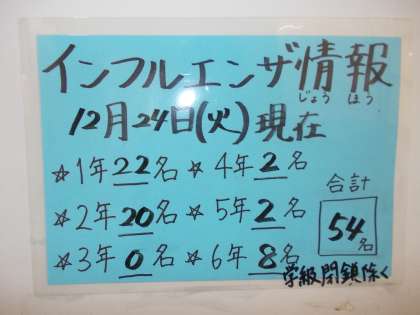 インフルエンザ情報
じょうほう
12月24日(火)現在
☆1年22名 ☆4年2名
☆2年20名 ☆5年2名
☆3年0名 ☆6年8名
合計
54名
学級閉鎖除く